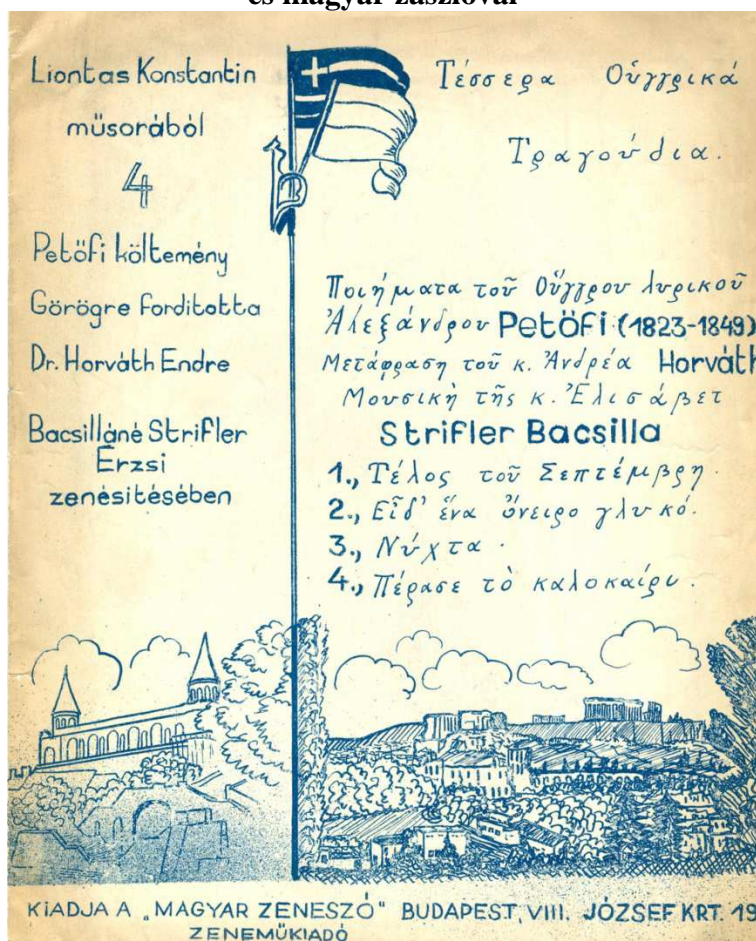 és magyar zászlóval
Liontas Konstantin
műsorából
4
Petőfi költemény
Görögre forditotta
Dr. Horváth Endre
Bacsilláné Strifler
Erzsi
zenésitésében
Τέσσερα Οὑγγρικά
Τραγούδια.
Ποιήματα τοῦ Οὕγγρου λυρικοῦ
Ἀλεξάνδρου Petőfi (1823-1849)
Μετάφραση τοῦ κ. Ἀνδρέα Horváth
Μουσικὴ τῆς κ. Ἐλισάβετ
Strifler Bacsilla
1., Τέλος τοῦ Σεπτέμβρη.
2., Εἶδ' ἕνα ὄνειρο γλυκό.
3., Νύχτα.
4., Πέρασε τὸ καλοκαίρι.
KIADJA A „MAGYAR ZENESZÓ" BUDAPEST, VIII. JÓZSEF KRT. 19
ZENEMŰKIADÓ